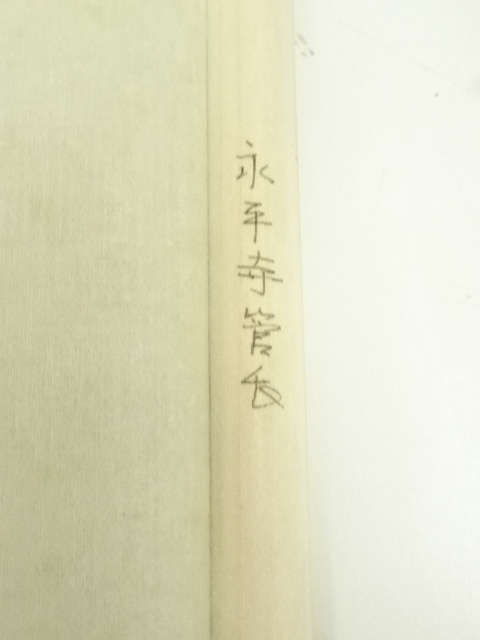 永平寺管長